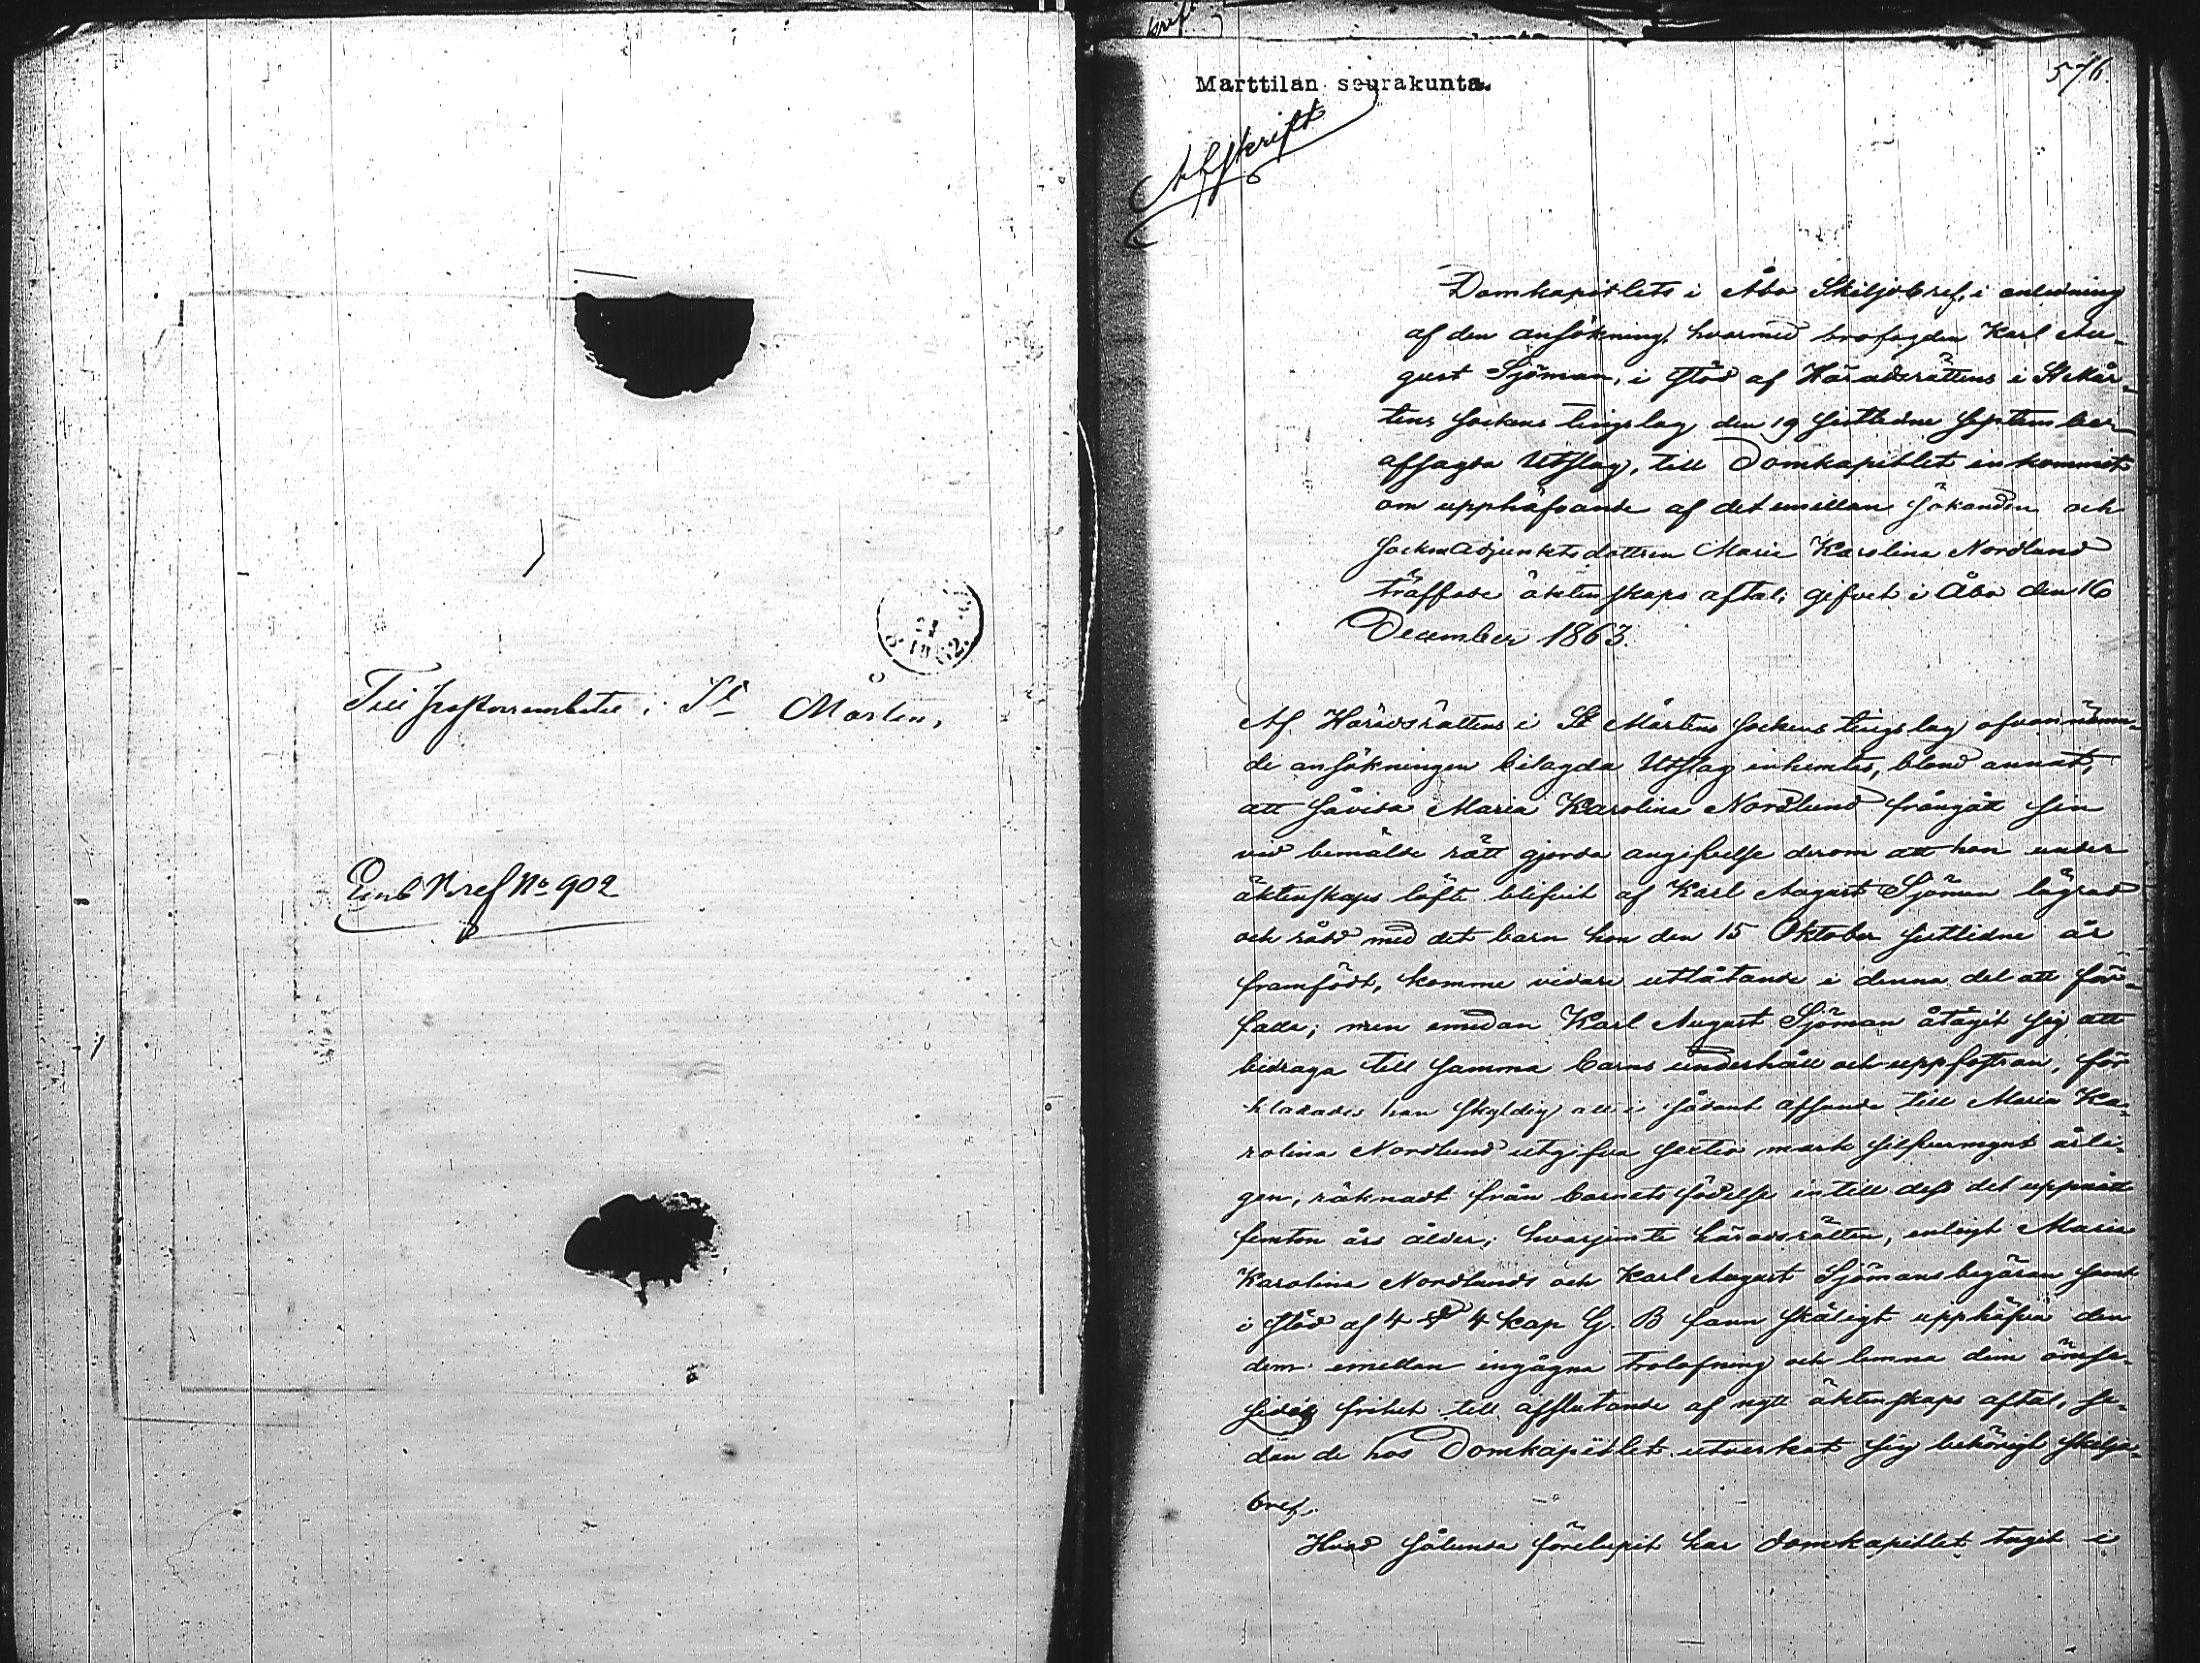 Till Pastorsembetet i St Mårten,
Emb Bref No 902
Marttilan seurakunta.
576
Afskrift
Domkapitlets i Åbo Skiljobref, i anledning
af den ansökning, hvarmed brofogden Karl Au-
gust Sjöman, i stöd af Häradsrättens i St Mår-
tens sockens tingslag den 19 sistlidne September
afsagda Utslag, till Domkapitlet inkommit
om upphäfvande af det emellan sökanden och
Sockneadjunktsdottren Maria Karolina Nordlund
träffade äktenskaps aftal; gifvet i Åbo den 16
December 1863.
Af Häradsrättens i St Mårtens sockens tingslag ofvannämn-
de ansökningen bilagda Utslag inhemtas, bland annat,
att såvida Maria Karolina Nordlund frångått sin
vid bemälde rätt gjorda angifvelse derom att hon under
äktenskaps löfte blifvit af Karl August Sjöman lägrad
och råd med det barn hon den 15 Oktober sistlidne år
framfödt, komme vidare utlåtande i denna del att för-
falla; men emedan Karl August Sjöman åtagit sig att
bidraga till samma barns underhåll och uppfostran, för
klarades han skyldig att i sådant afseende till Maria Ka-
rolina Nordlund utgifva sextio mark silfvermynt årli-
gen, räknadt från barnets födelse intill dess det uppnått
femton års ålder; hvarjemte häradsrätten, enligt Maria
Karolina Nordlunds och Karl August Sjömans begäran samt
i stöd af 4 § 4 kap G. B fann skäligt upphäfva den
dem emellan ingångna trolofning och lemna dem ömse-
sidig frihet till afslutande af nytt äktenskaps aftal, se-
dan de hos Domkapitlet utverkat sig behörigt skiljo-
bref.
Hvad sålunda förelupit har Domkapitlet tagit i